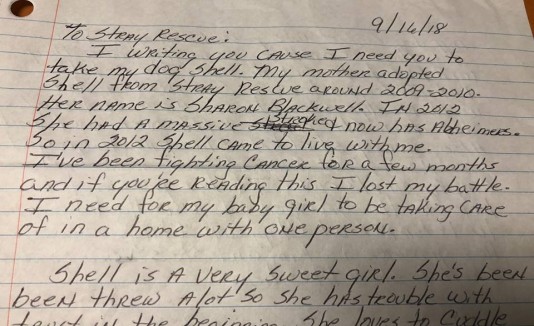 9/16/18
To Stray Rescue:
I writing you cause I need you to
take my dog Shell. My mother adopted
Shell from Stray Rescue around 2009-2010.
Her name is Sharon Blackwell. In 2012
she had a massive stroked now has Alzheimers.
So in 2012 Shell came to live with me.
I've been fighting Cancer for a few months
and if you're reading this I lost my battle.
I need for my baby girl to be taking care
of in a home with one person.
Shell is a very sweet girl. She's been
been threw alot so she has trouble with
trust in the beginning. She loves to cuddle